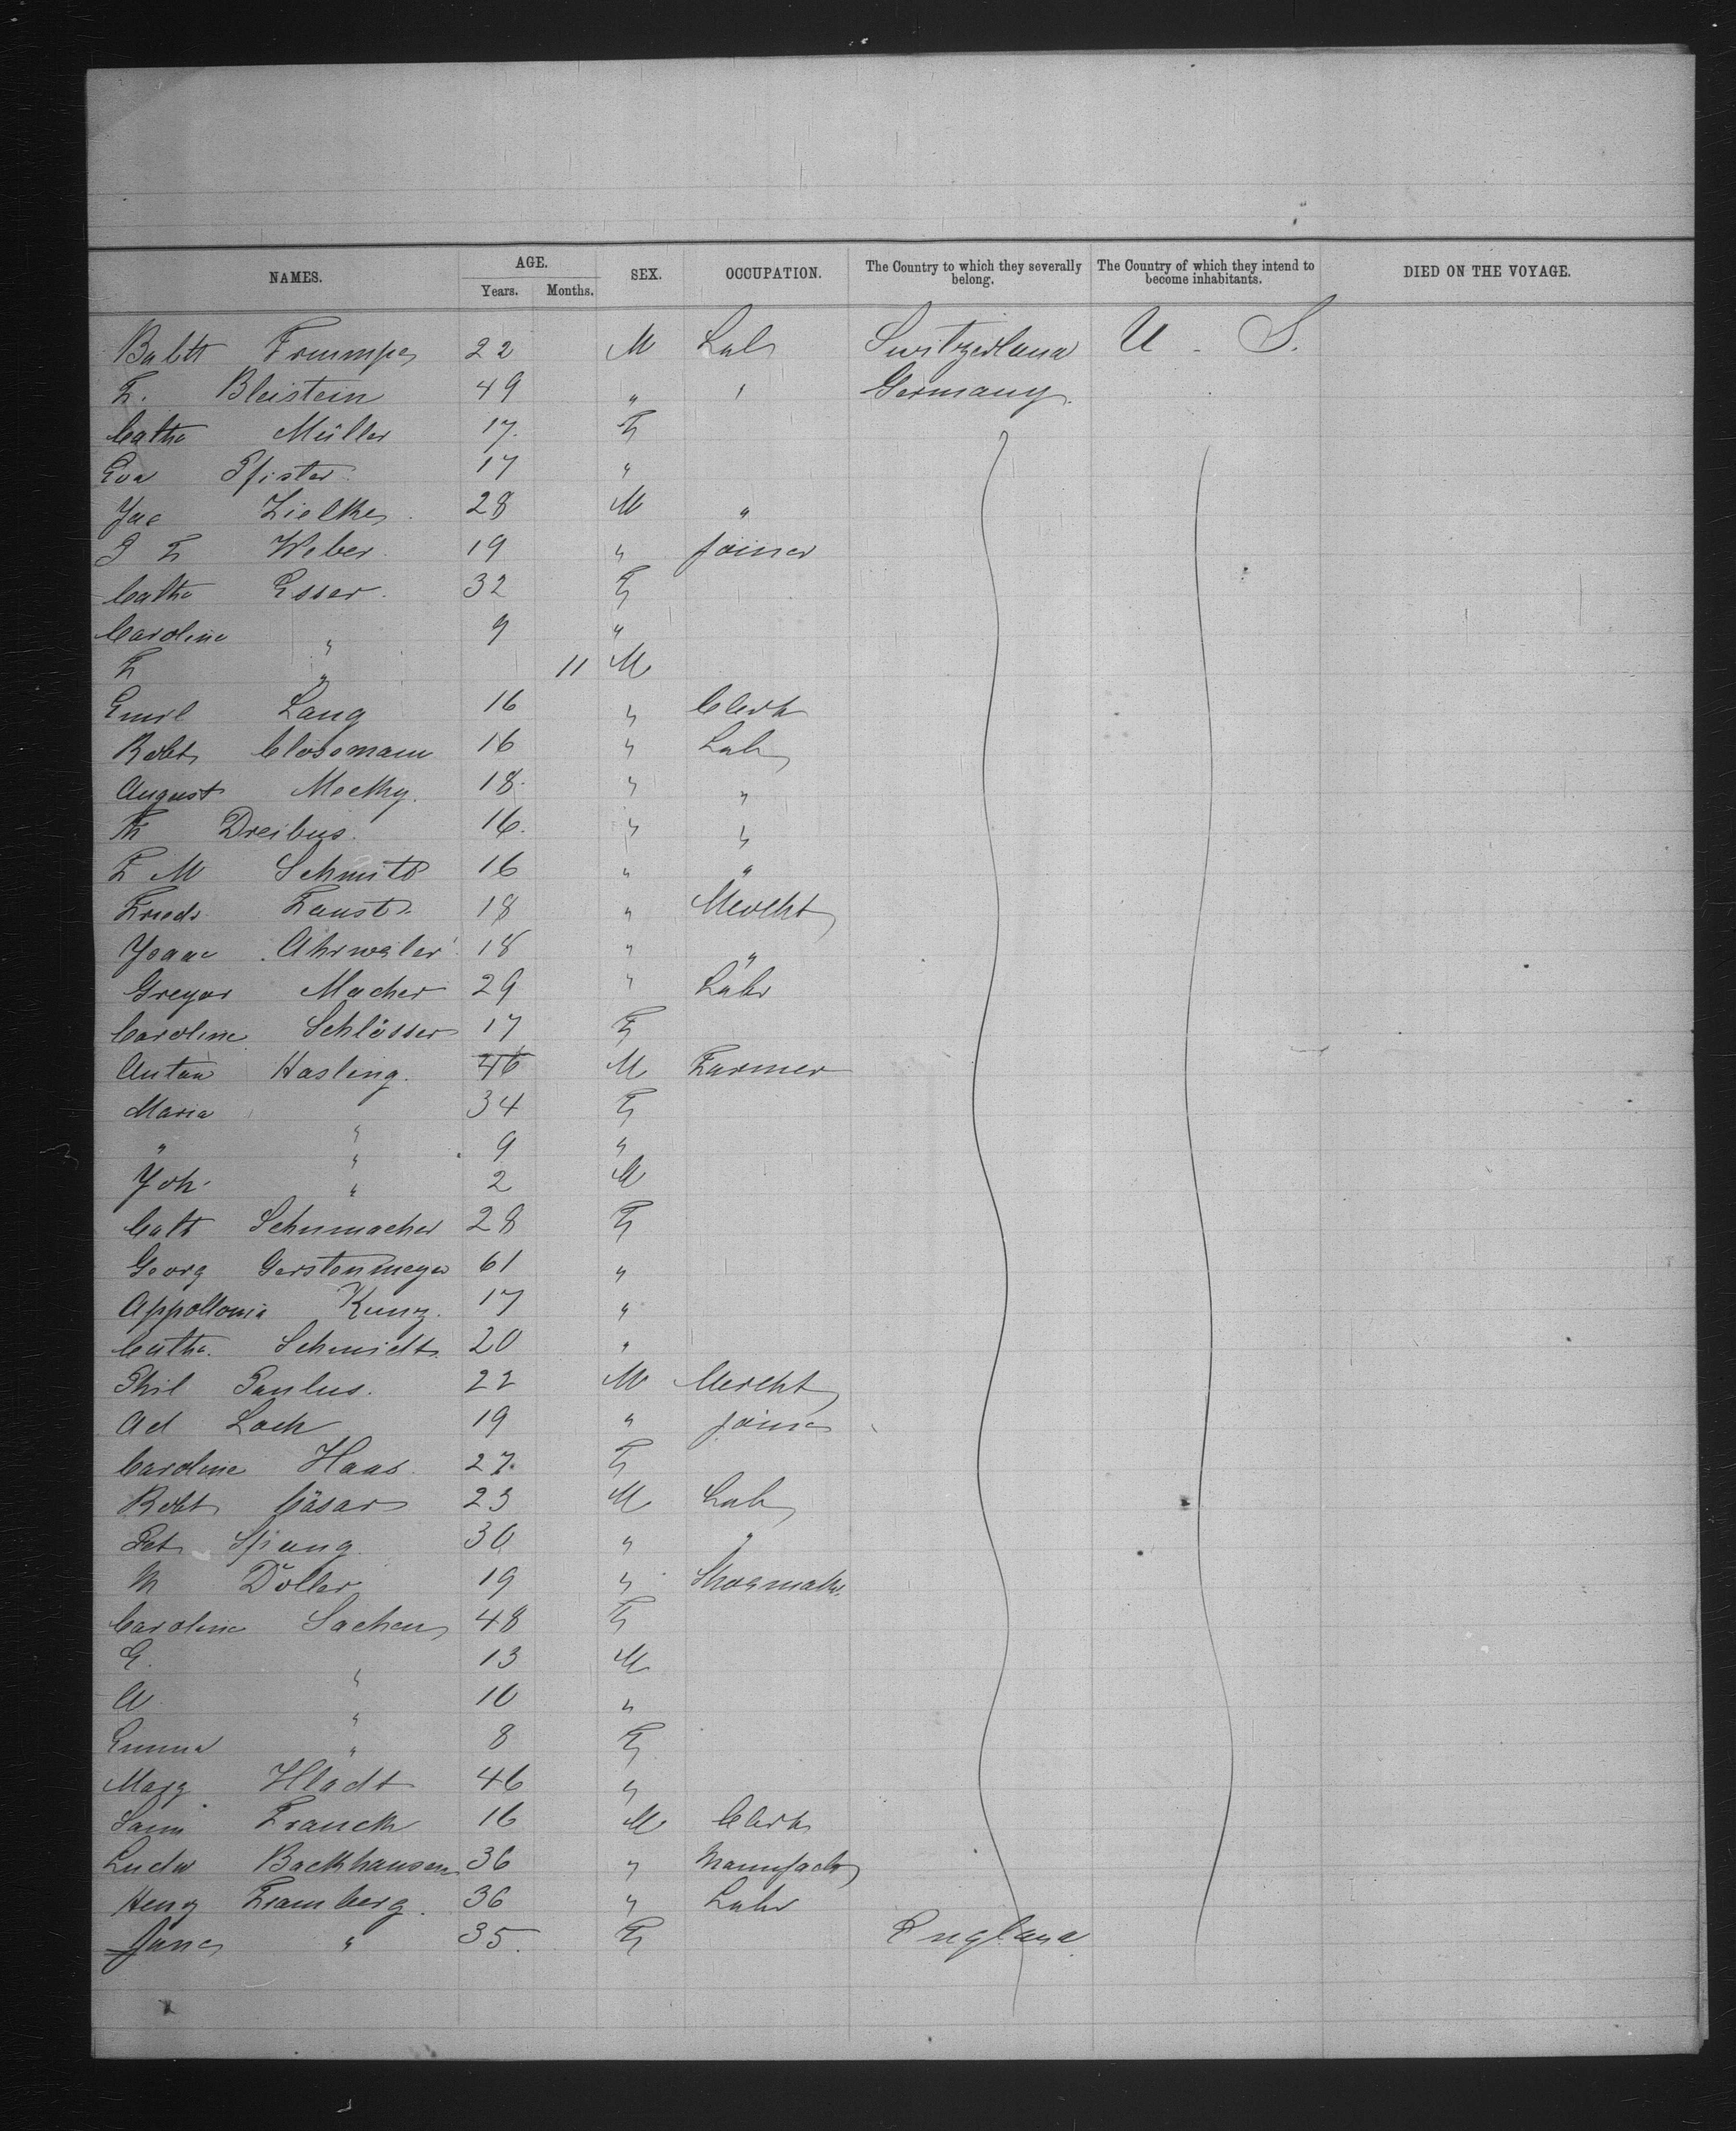 NAMES. AGE. Years. Months. SEX. OCCUPATION. The Country to which they severally belong. The Country of which they intend to become inhabitants. DIED ON THE VOYAGE.
Balth 22 M Lab Switzerland U. S.
F. Bleistein 49 " " Germany.
Catha Müller 17. F
Eva Pfister 17 "
Jac Zielke 28 M "
J F Weber 19 " Joiner
Catha Esser. 32 F
Caroline " 9 "
F " 11 M
Emil Lang 16 " Clerk
Robt Clossmann 16 " Lab
August 18. " "
Th Dreibus. 16. " "
F M Schmitt 16 " "
Friedr Faust 18 " Mercht
Isaac Ahrweiler 18 " "
Gregor Macher 29 " Labr
Caroline Schlösser 17 F
Anton Hasling. 46 M Farmer
Maria " 34 F
" " 9 "
Joh. " 2 M
Cath Schumacher 28 F
Georg Gerstenmeyer 61 "
Appollonia Kunz. 17 "
Catha. Schmidt 20 "
Phil Paulus. 22 M Mercht
Ad Loch 19 " Joiner
Caroline Haas 27. F
Robt Cäsar 23 M Lab
Pet Spang 30 " "
M Doller 19 " Shoemakr.
Caroline Sachen 48 F
G. " 13 M
A " 10 "
Emma " 8 F
Marg 46 "
Sam Franck 16 M Clerk
Ludw Backhausen 36 " Manufactr
Henry Framberg. 36 " Labr
Jane " 35. F England